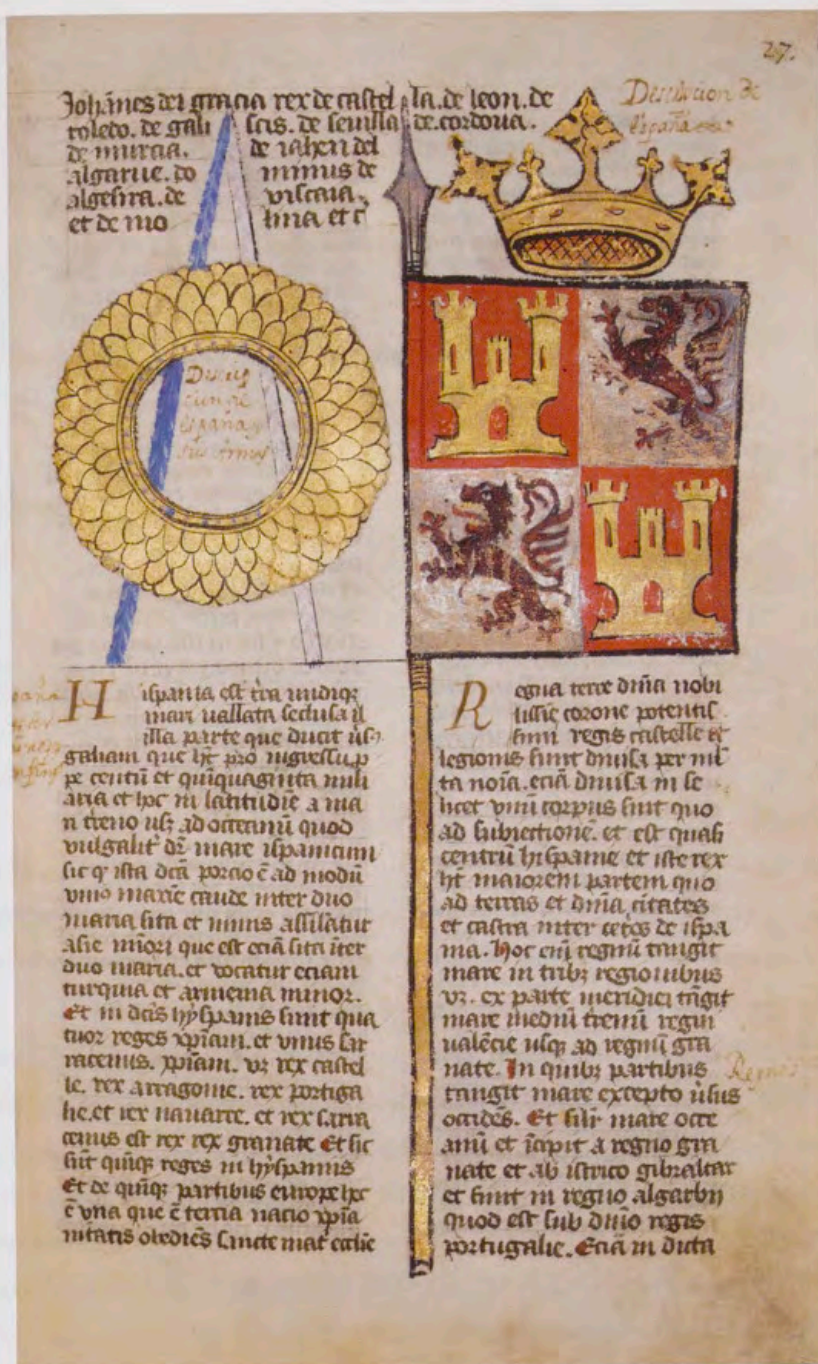 27.
Johannes dei gracia rex de castel la. de leon. de
toledo. de gali scis. de seuilla de cordoua.
de murcia. de iahen del
algarue. do minus de
algesira. de viscaia.
et de mo lina et c̄
España
H ispania est t̄ra undiq;
mari uallata seclusa
illa parte que ducit
galiam que hr̄ pro ingressu p
pe centū et quiquaginta mili
aria et hoc in latitudīe a ma
n treno usq; ad occeanū quod
vulgalit̄ dr̄ mare ispanicum
sic q ista dc̄ā porcio ē ad modū
unio maxīe caude inter duo
maria sita et nimis assilatur
asie miori que est eciā sita īter
duo maria. et vocatur eciam
turquia et armenia minor.
Et in dc̄is hyspaniis sunt qua
tuor reges xp̄iani. et vnus sar
racenus. xp̄iani. vz rex castel
le. rex arragonie. rex portiga
lie. et rex nauarre. et rex sarra
cenus est rex rex granate Et sic
sūt quīq; reges in hyspaniis
Et de quīq; partibus europe hec
ē vna que ē tercia nacio xp̄ia
nitatis obediēs sancte mat̄ eccl̄ie
R egna terre dn̄ia nobi
lissīe corone potentis
simi regis castelle et
legionis sunt diuisa per ml̄
ta noīa. eciā diuisa in se
licet vnū corpus sint quo
ad subiectionē. et est quasi
centrū hispanie et iste rex
hr̄ maiorem partem quo
ad terras et dn̄ia, citates
et castra inter cet̄os de ispa
nia. Hoc eni regnū tangit
mare in tribz regionibus
vz. ex parte meridiei tāgit
mare mediū trenū regni
ualēcie usq; ad regnū gra
nate. In quibz partibus
tangit mare excepto ūsus
occidēs. Et silr̄ mare occe
anū et īcipit a regno gra
nate et ab istrico gibraltar
et finit in regno algarbii
quod est sub dn̄io regis
portugalie. Eciā in dicta